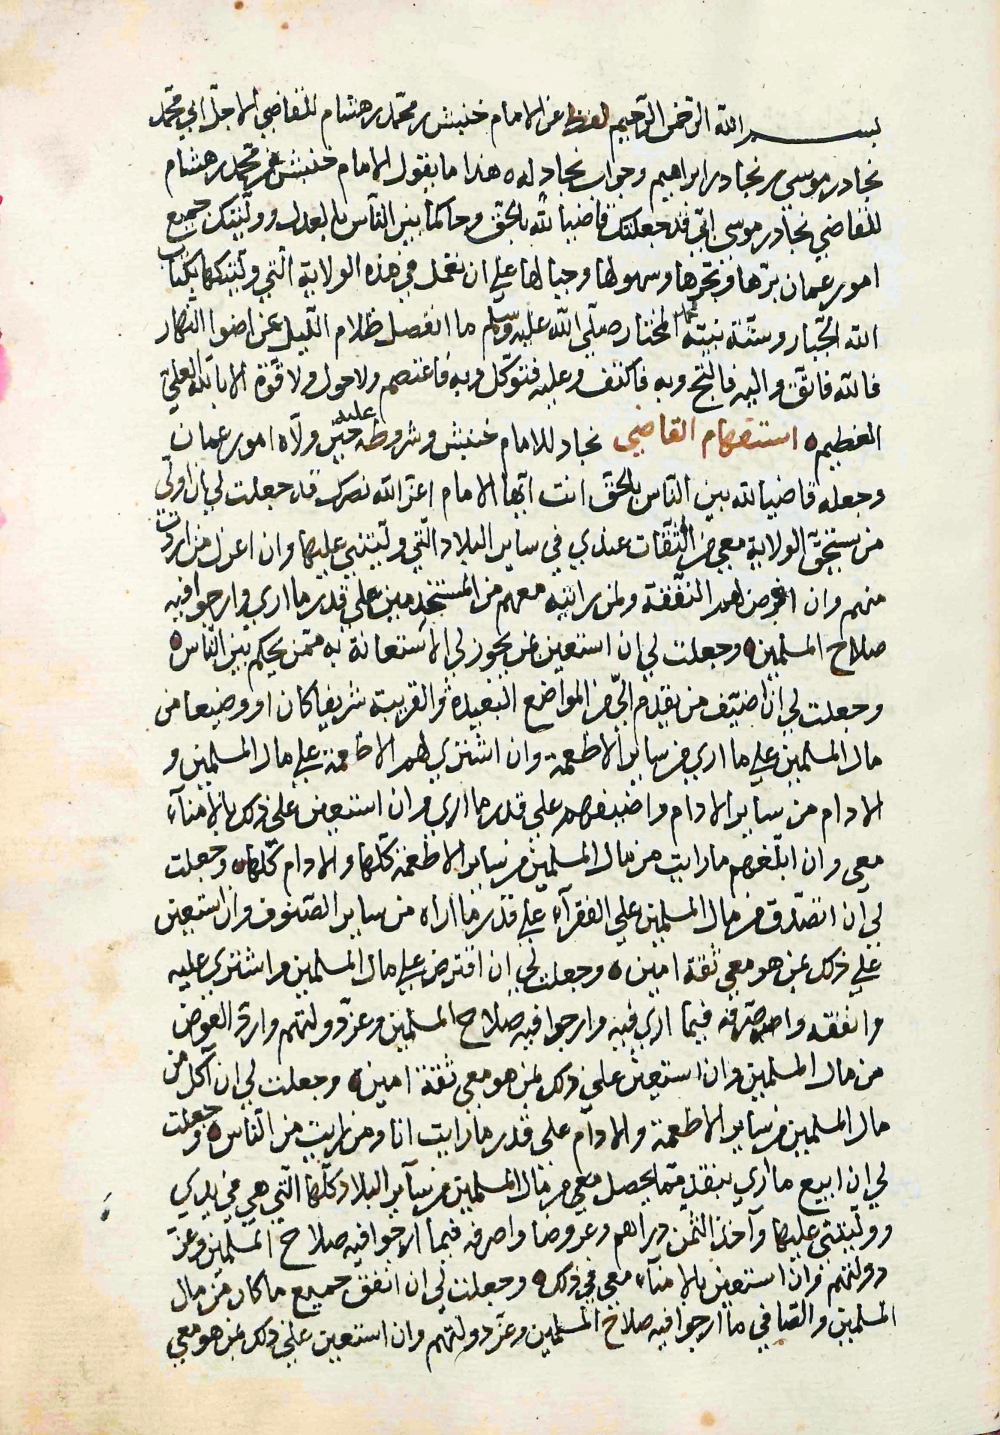 بسم الله الرحمن الرحيم لفظ عن الامام خنبش بن محمد بن هشام للقاضي الاجل ابي محمد
نجاد بن موسى بن نجاد بن ابراهيم وجواب نجاد له ه هذا ما يقول الامام خنبش بن محمد بن هشام
للقاضي نجاد بن موسى اني قد جعلتك قاضيا لله بالحق وحاكما بين الناس بالعدل ووليتك جميع
امور عمان برها وبحرها وسهولها وجبالها على ان تعمل في هذه الولاية التي وليتكها بكتاب
الله الجبار وسنة نبيه محمد المختار صلى الله عليه وسلم ما انفصل ظلام الليل عن اضوا النهار
فالله فاتق واليه فالتج وبه فاكتف وعليه فتوكل وبه فاعتصم ولا حول ولا قوة الا بالله العلي
العظيم ه استفهام القاضي نجاد للامام خنبش وشروطه عليه حين ولاه امور عمان
وجعله قاضيا لله بين الناس بالحق انت ايها الامام اعز الله نصرك قد جعلت لي ان اولي
من يستحق الولاية معي من الثقات عندي في ساير البلاد التي وليتني عليها وان اعزل من اردت
منهم وان افرض لهم النفقة ولمن رايته معهم من المستخدمين على قدر ما اري وارجوا فيه
صلاح المسلمين ه وجعلت لي ان استعين بمن يجوز لي الاستعانة به ممن يحكم بين الناس ه
وجعلت لي ان اضيف من يقدم الي من المواضع البعيدة والقريبة شريفا كان او وضيعا من
مال المسلمين على ما اري من ساير الاطعمة وان اشتري لهم الاطعمة على مال المسلمين و
الادام من ساير الادام واضيفهم على قدر ما اري وان استعين على ذلك بالامناء
معي وان ابلغهم ما رايت من مال المسلمين من ساير الاطعمة كلها والادام كلها ه وجعلت
لي ان اتصدق من مال المسلمين على الفقراء على قدر ما اراه من ساير الصنوف وان استعين
على ذلك بمن هو معي ثقة امين ه وجعلت لي ان اقترض على مال المسلمين واشتري عليه
وانفقه واصرفه فيما اري فيه وارجوا فيه صلاح المسلمين وعز دولتهم وارد العوض
من مال المسلمين وان استعين على ذلك بمن هو معي ثقة امين ه وجعلت لي ان آكل من
مال المسلمين من ساير الاطعمة والادام على قدر ما رايت انا ومن رايت من الناس ه وجعلت
لي ان ابيع ما اري بنقد مما يحصل معي من مال المسلمين من ساير البلاد كلها التي هي في يدي
ووليتني عليها وآخذ الثمن دراهم وعروضا واصرفه فيما ارجوا فيه صلاح المسلمين وعز
دولتهم وان استعين بالامناء معي في ذلك ه وجعلت لي ان انفق جميع ما كان من مال
المسلمين والصافي ما ارجوا فيه صلاح المسلمين وعز دولتهم وان استعين على ذلك بمن هو معي